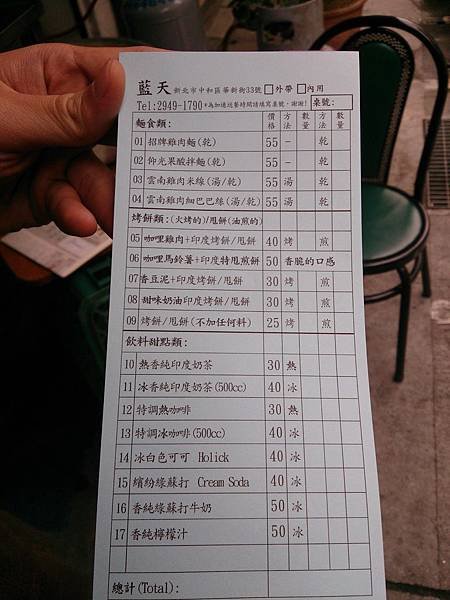 藍天 新北市中和區華新街33號 □外帶 □內用
Tel:2949-1790 *為加速送餐時間請填寫桌號,謝謝! 桌號:
麵食類: 價格 方法 數量 方法 數量
01 招牌雞肉麵(乾) 55 – 乾
02 仰光果酸拌麵(乾) 55 – 乾
03 雲南雞肉米線(湯/乾) 55 湯 乾
04 雲南雞肉細巴巴絲(湯/乾) 55 湯 乾
烤餅類:(火烤的)/甩餅(油煎的)
05 咖哩雞肉+印度烤餅/甩餅 40 烤 煎
06 咖哩馬鈴薯+印度特甩煎餅 50 香脆的口感
07 香豆泥+印度烤餅/甩餅 30 烤 煎
08 甜味奶油印度烤餅/甩餅 30 烤 煎
09 烤餅/甩餅(不加任何料) 25 烤 煎
飲料甜點類:
10 熱香純印度奶茶 30 熱
11 冰香純印度奶茶(500cc) 40 冰
12 特調熱咖啡 30 熱
13 特調冰咖啡(500cc) 40 冰
14 冰白色可可 Holick 40 冰
15 繽紛綠蘇打 Cream Soda 40 冰
16 香純綠蘇打牛奶 50 冰
17 香純檸檬汁 50 冰
總計(Total):